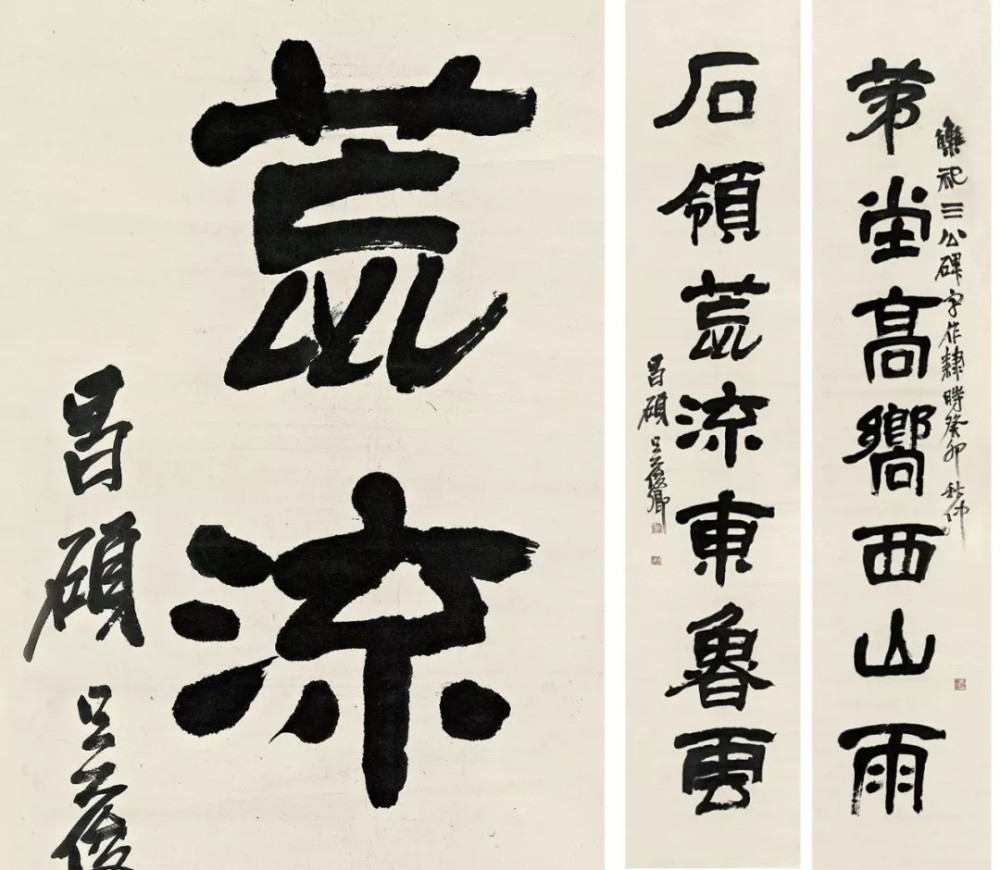 苐堂高嚮西山雨
雧祀三公碑字作隸時癸卯秋仲
石領荒流東魯雲
昌碩吳俊卿
荒流
昌碩吳俊